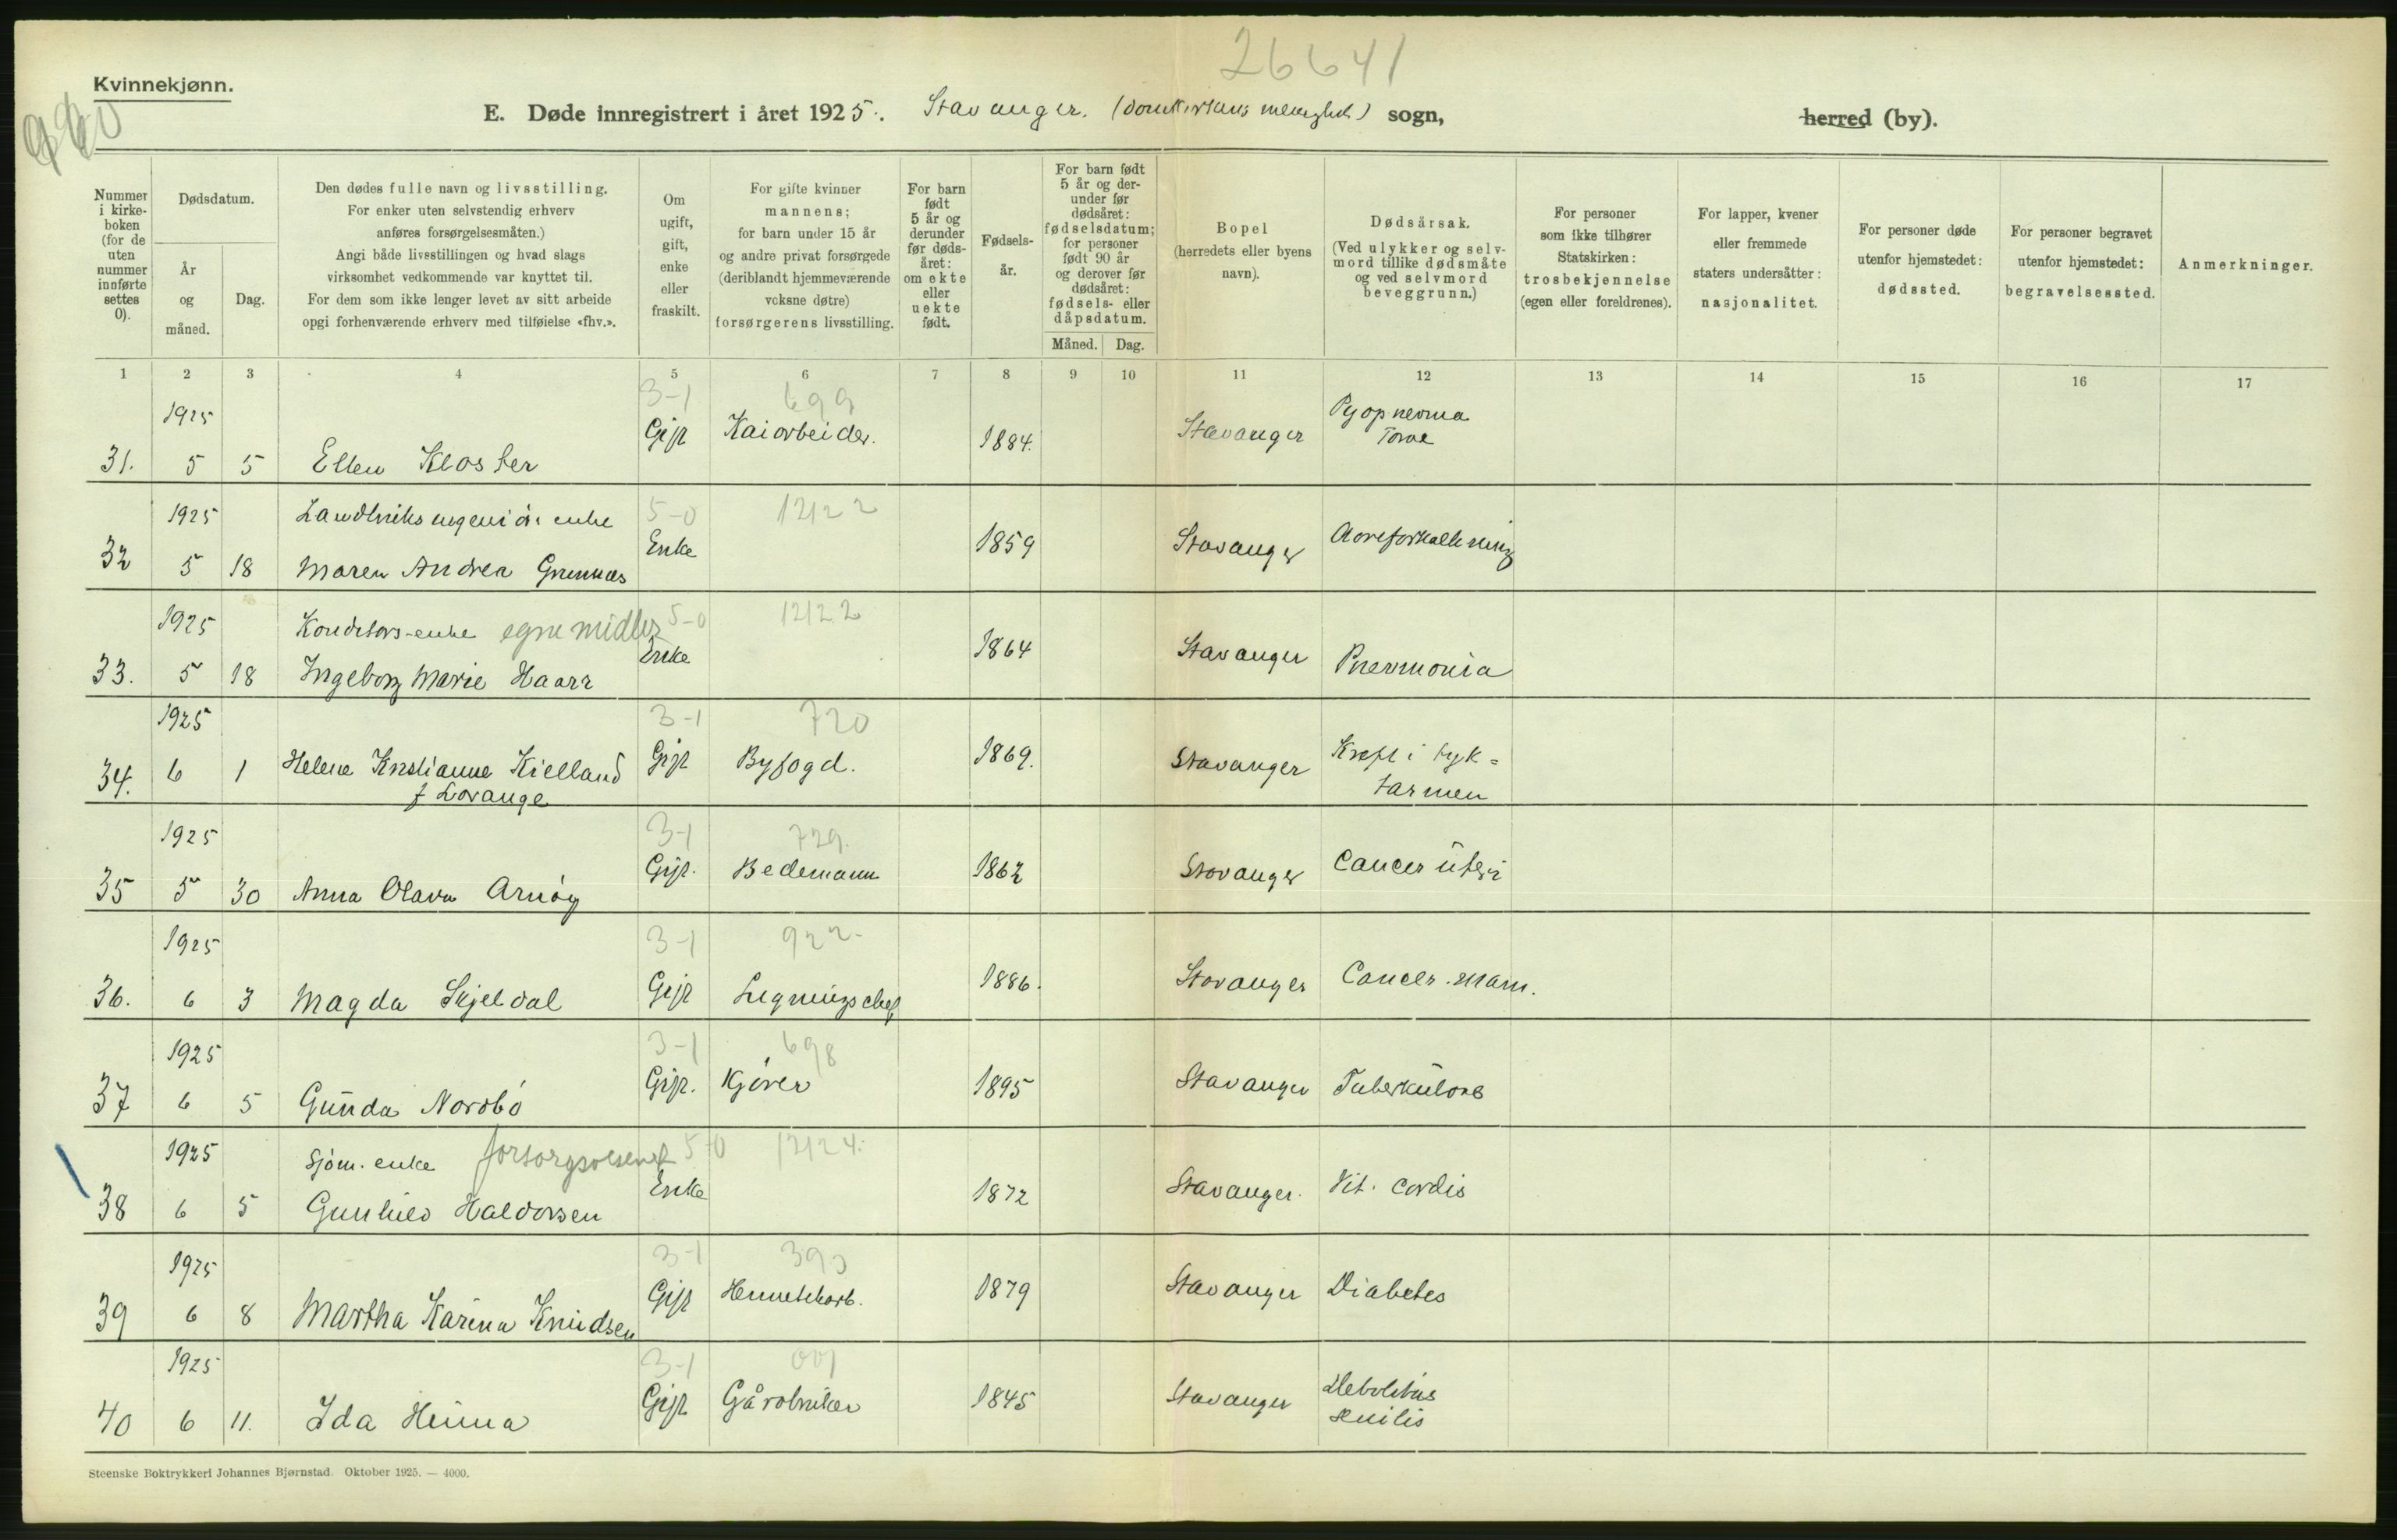 26641
Kvinnekjønn.
E. Døde innregistrert i året 1925. Stavanger. (Domkirkens menighet) sogn, herred (by).
Nummer i kirkeboken (for de uten nummer innførte settes 0).
Dødsdatum.
År og måned.
Dag.
Den dødes fulle navn og livsstilling.
For enker uten selvstendig erhverv
anføres forsørgelsesmåten.)
Angi både livsstillingen og hvad slags
virksomhet vedkommende var knyttet til.
For dem som ikke lenger levet av sitt arbeide
opgi forhenværende erhverv med tilføielse «fhv.».
Om ugift, gift, enke eller fraskilt.
For gifte kvinner
mannens;
for barn under 15 år
og andre privat forsørgede
(deriblandt hjemmeværende
voksne døtre)
forsørgerens livsstilling.
For barn født 5 år og derunder før dødsåret: om ekte eller uekte født.
Fødselsår.
For barn født 5 år og derunder før dødsåret: fødselsdatum; for personer født 90 år og derover før dødsåret: fødsels- eller dåpsdatum.
Måned. Dag.
Bopel
(herredets eller byens
navn).
Dødsårsak.
(Ved ulykker og selvmord tillike dødsmåte og ved selvmord beveggrunn.)
For personer
som ikke tilhører
Statskirken:
trosbekjennelse
(egen eller foreldrenes).
For lapper, kvener
eller fremmede
staters undersåtter:
nasjonalitet.
For personer døde
utenfor hjemstedet:
dødssted.
For personer begravet
utenfor hjemstedet:
begravelsessted.
Anmerkninger.
1 2 3 4 5 6 7 8 9 10 11 12 13 14 15 16 17
1925 3-1 699 Pyopnevma
Gift Kaiarbeider. 1884. Stavanger Torax
31. 5 5 Ellen Kloster
1925 5-0 12122
Enke 1859 Stavanger Aareforkalkning
32 5 18 Maren Andrea
1925 Konditors-enke egne midler 5-0 12122
Enke 1864 Stavanger Pnevmonia
33. 5 18 Ingeborg Marie Haarr
1925 3-1 720
34. 6 1 Helene Kristianne Kielland Gift Byfogd. 1869. Stavanger Kreft i tyk=
f Lorange tarmen
1925 3-1 729.
Gift. Bedemann 1862 Stavanger Cancer uteri
35 5 30 Anna Olava Arnøy
1925 3-1 922-
36. 6 3 Magda Skjeldal Gift Ligningschef 1886. Stavanger Cancer. Mam.
1925 3-1 698
37 6 5 Gunda Nordbø Gift. Kjører 1895 Stavanger Tuberkulose
1925 Sjøm. enke 5-0 12124.
Enke 1872 Stavanger. Vit. cordis
38 6 5 Gunhild Haldorsen
1925 3-1 393
39 6 8 Martha Karina Knudsen Gift 1879 Stavanger Diabetes
1925 3-1 001
40 6 11. Ida Hinna Gift Gårdbruker 1845 Stavanger Debilitas
senilis
Steenske Boktrykkeri Johannes Bjørnstad. Oktober 1925. — 4000.